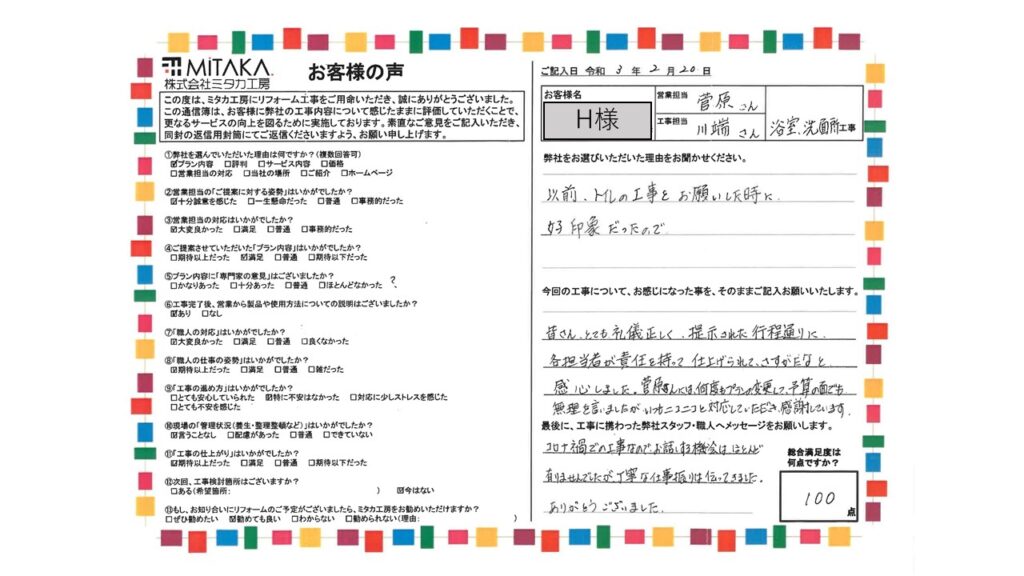 MiTAKA
株式会社ミタカ工房
お客様の声
この度は、ミタカ工房にリフォーム工事をご用命いただき、誠にありがとうございました。
この通信簿は、お客様に弊社の工事内容について感じたままに評価していただくことで、
更なるサービスの向上を図るために実施しております。素直なご意見をご記入いただき、
同封の返信用封筒にてご返信くださいますよう、お願い申し上げます。
①弊社を選んでいただいた理由は何ですか?(複数回答可)
☑プラン内容 □評判 □サービス内容 □価格
□営業担当の対応 □当社の場所 □ご紹介 □ホームページ
②営業担当の「ご提案に対する姿勢」はいかがでしたか?
☑十分誠意を感じた □一生懸命だった □普通 □事務的だった
③営業担当の対応はいかがでしたか?
☑大変良かった □満足 □普通 □事務的だった
④ご提案させていただいた「プラン内容」はいかがでしたか?
□期待以上だった ☑満足 □普通 □期待以下だった
⑤プラン内容に「専門家の意見」はございましたか?
□かなりあった □十分あった □普通 □ほとんどなかった ?
⑥工事完了後、営業から製品や使用方法についての説明はございましたか?
☑あり □なし
⑦「職人の対応」はいかがでしたか?
☑大変良かった □満足 □普通 □良くなかった
⑧「職人の仕事の姿勢」はいかがでしたか?
☑期待以上だった □満足 □普通 □雑だった
⑨「工事の進め方」はいかがでしたか?
□とても安心していられた ☑特に不安はなかった □対応に少しストレスを感じた
□とても不安を感じた
⑩現場の「管理状況(養生・整理整頓など)」はいかがでしたか?
☑言うことなし □配慮があった □普通 □できていない
⑪「工事の仕上がり」はいかがでしたか?
☑期待以上だった □満足 □普通 □期待以下だった
⑫次回、工事検討箇所はございますか?
□ある(希望箇所: ) ☑今はない
⑬もし、お知り合いにリフォームのご予定がございましたら、ミタカ工房をお勧めいただけますか?
□ぜひ勧めたい ☑勧めても良い □わからない □勧められない(理由: )
ご記入日 令和 3 年 2 月 20 日
お客様名
H様
営業担当 菅原 さん
工事担当 川端 さん
浴室、洗面所工事
弊社をお選びいただいた理由をお聞かせください。
以前、トイレの工事をお願いした時に、
好印象だったので
今回の工事について、お感じになった事を、そのままご記入お願いいたします。
皆さん、とても礼儀正しく、提示された行程通りに
各担当者が責任を持って仕上げられて、さすがだなと
感心しました。菅原さんには何度もプランの変更して、予算の面でも
無理を言いましたがいつもニコニコと対応していただき、感謝しています。
最後に、工事に携わった弊社スタッフ・職人へメッセージをお願いします。
コロナ禍での工事なのでお話しする機会はほとんど
有りませんでしたが丁寧な仕事振りは伝ってきました。
ありがとうございました。
総合満足度は
何点ですか?
100
点